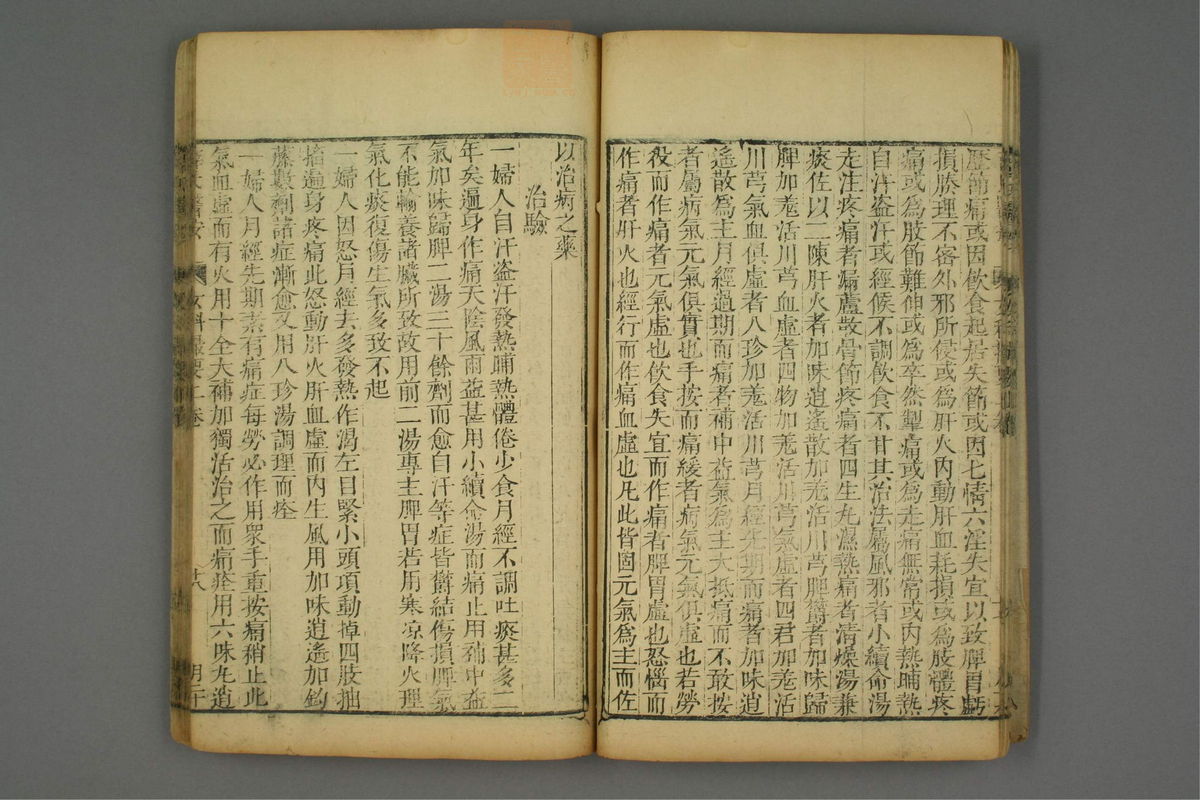 歷節痛或因飲食起居失節或因七情六淫失宜以致脾胃虧
損腠理不密外邪所侵或為肝火內動肝血耗損或為肢體疼
痛或為肢節難伸或為卒然掣痛或為走痛無常或內熱晡熱
自汗盜汗或經候不調飲食不甘其治法屬風邪者小續命湯
走注疼痛者漏蘆散骨節疼痛者四生丸濕熱痛者清燥湯兼
痰佐以二陳肝火者加味逍遙散加羗活川芎脾欝者加味歸
脾加羗活川芎血虛者四物加羗活川芎氣虛者四君加羗活
川芎氣血俱虛者八珍加羗活川芎月經先期而痛者加味逍
遙散為主月經過期而痛者補中益氣為主大抵痛而不敢按
者屬病氣元氣俱實也手按而痛緩者病氣元氣俱虛也若勞
役而作痛者元氣虛也飲食失宜而作痛者脾胃虛也怒惱而
作痛者肝火也經行而作痛血虛也凡此皆固元氣為主而佐
以治病之藥
治驗
一婦人自汗盜汗發熱晡熱體倦少食月經不調吐痰甚多二
年矣遍身作痛天陰風雨益甚用小續命湯而痛止用補中益
氣加味歸脾二湯三十餘劑而愈自汗等症皆欝結傷損脾氣
不能輸養諸臟所致故用前二湯專主脾胃若用寒凉降火理
氣化痰復傷生氣多致不起
一婦人因怒月經去多發熱作渴左目緊小頭項動掉四肢抽
搐遍身疼痛此怒動肝火肝血虛而內生風用加味逍遙加鈎
藤數劑諸症漸愈又用八珍湯調理而痊
一婦人月經先期素有痛症每勞必作用眾手重按痛稍止此
氣血虛而有火用十全大補加獨活治之而痛痊用六味丸逍
女科撮要上卷 廿八